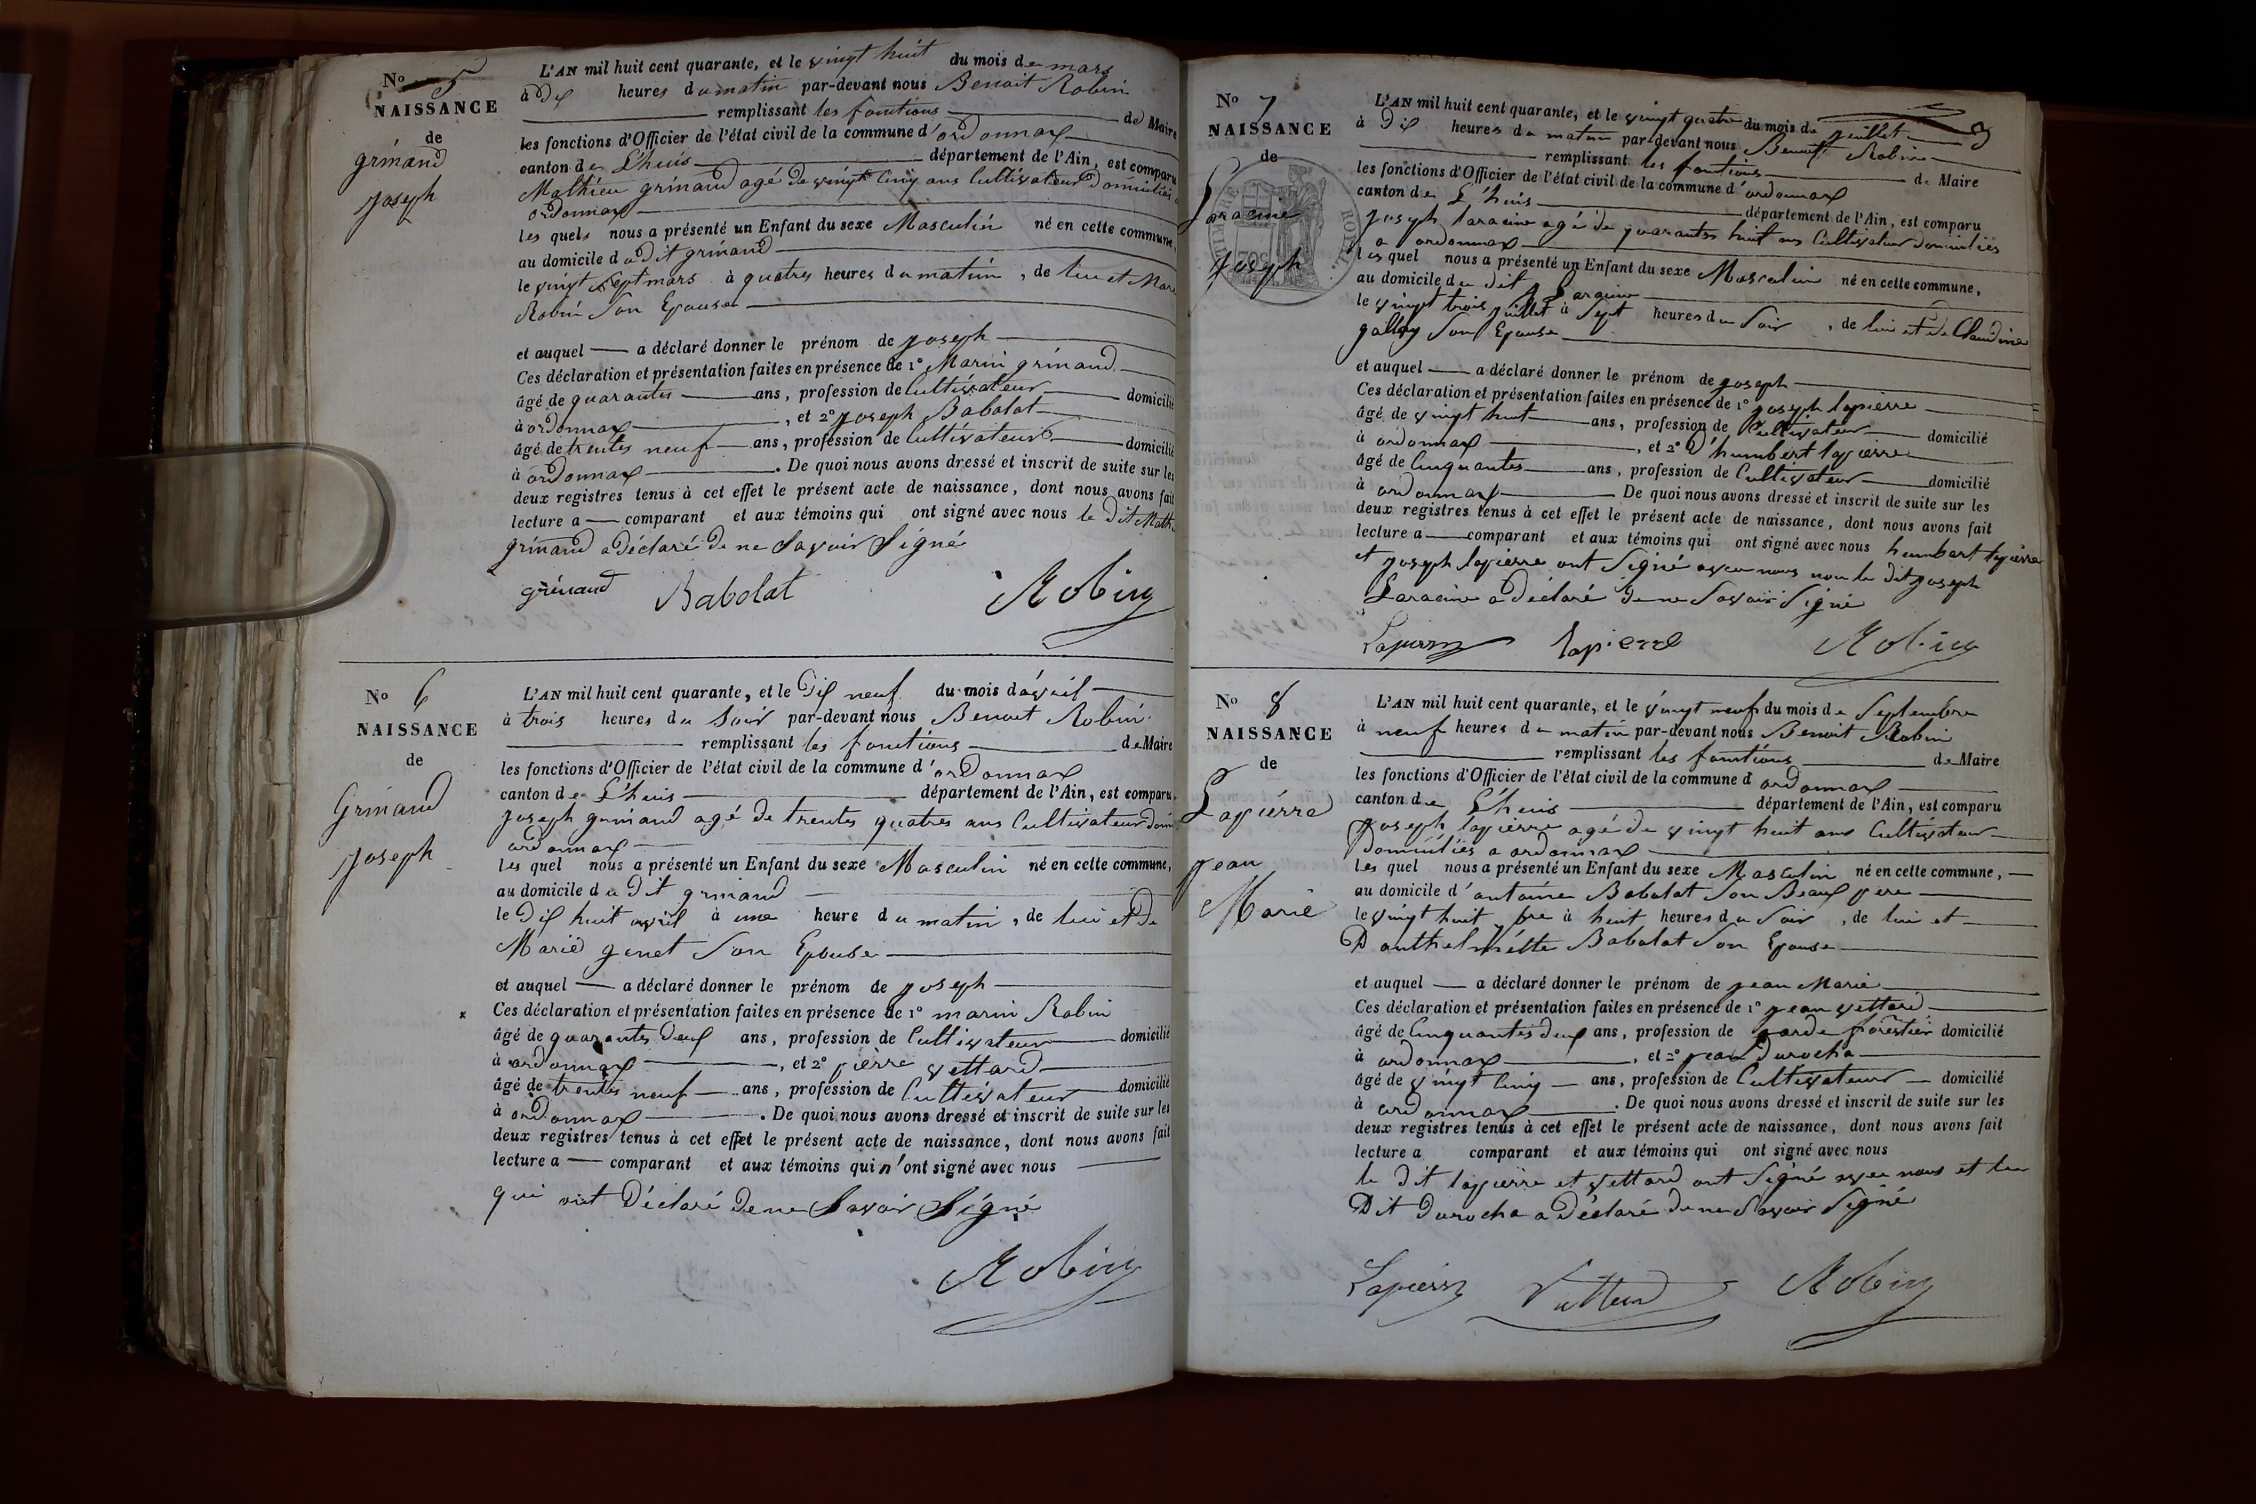 No 5
NAISSANCE
de
grinand
joseph
L'AN mil huit cent quarante, et le vingt huit du mois de mars
à dix heures du matin par-devant nous Benoit Robin
remplissant les fonctions de Maire
les fonctions d'Officier de l'état civil de la commune d'ordonnax
canton de L'huis département de l'Ain, est comparu
Mathieu grinand agé de vingt cinq ans Cultivateur domiciliés a
ordonnax
les quels nous a présenté un Enfant du sexe Masculin né en cette commune,
au domicile du dit grinand
le vingt sept mars à quatres heures du matin, de lui et Marie
Robin Son Epouse
et auquel a déclaré donner le prénom de joseph
Ces déclaration et présentation faites en présence de 1º Marin grinand
âgé de quarantes ans, profession de Cultivateur domicilié
à ordonnax, et 2º joseph Babolat
âgé de trentes neuf ans, profession de Cultivateur domicilié
à ordonnax. De quoi nous avons dressé et inscrit de suite sur les
deux registres tenus à cet effet le présent acte de naissance, dont nous avons fait
lecture a comparant et aux témoins qui ont signé avec nous le dit Math
grinand a déclaré de ne Savoir Signé
grinand Babolat Robin
No 6
NAISSANCE
de
Grinand
joseph
L'AN mil huit cent quarante, et le dix neuf du mois d'avril
à trois heures du Soir par-devant nous Benoit Robin
remplissant les fonctions de Maire
les fonctions d'Officier de l'état civil de la commune d'ordonnax
canton de L'huis département de l'Ain, est comparu
joseph grinand agé de trentes quatres ans Cultivateur dom
ordonnax
les quel nous a présenté un Enfant du sexe Masculin né en cette commune,
au domicile du dit grinand
le dix huit avril à une heure du matin, de lui et de
Marie genet Son Epouse
et auquel a déclaré donner le prénom de joseph
Ces déclaration et présentation faites en présence de 1º marin Robin
âgé de quarantes deux ans, profession de Cultivateur domicilié
à ordonnax, et 2º pierre vettard
âgé de trentes neuf ans, profession de Cultivateur domicilié
à ordonnax. De quoi nous avons dressé et inscrit de suite sur les
deux registres tenus à cet effet le présent acte de naissance, dont nous avons fait
lecture a comparant et aux témoins qui n'ont signé avec nous
qui ont Déclaré de ne Savoir Signé
Robin
No 7
NAISSANCE
de
Laracine
joseph
L'AN mil huit cent quarante, et le vingt quatre du mois de juillet
à dix heures du matin par-devant nous Benoit Robin
remplissant les fontions de Maire
les fonctions d'Officier de l'état civil de la commune d'ordonnax
canton de L'huis département de l'Ain, est comparu
joseph laracine agé de quarantes huit ans Cultivateur domiciliés
a ordonnax
les quel nous a présenté un Enfant du sexe Masculin né en cette commune,
au domicile du dit Laracine
le vingt trois juillet à Sept heures du Soir, de lui et de Claudine
gallay Son Epouse
et auquel a déclaré donner le prénom de joseph
Ces déclaration et présentation faites en présence de 1º joseph lapierre
âgé de vingt huit ans, profession de Cultivateur domicilié
à ordonnax, et 2º d'humbert lapierre
âgé de Cinquantes ans, profession de Cultivateur domicilié
à ordonnax De quoi nous avons dressé et inscrit de suite sur les
deux registres tenus à cet effet le présent acte de naissance, dont nous avons fait
lecture a comparant et aux témoins qui ont signé avec nous humbert lapierre
et joseph lapierre ont Signé avec nous non le dit joseph
Laracine a déclaré de ne Savoir Signé
Lapierre lapierre Robin
No 8
NAISSANCE
de
Lapierre
jean
Marie
L'AN mil huit cent quarante, et le vingt neuf du mois de Septembre
à neuf heures du matin par-devant nous Benoit Robin
remplissant les fontions de Maire
les fonctions d'Officier de l'état civil de la commune d ordonnax
canton de L'huis département de l'Ain, est comparu
joseph lapierre agé de vingt huit ans Cultivateur
Domiciliés a ordonnax
les quel nous a présenté un Enfant du sexe Masculin né en cette commune,
au domicile d'antoine Babolat Son Beaux pere
le vingt huit 7bre à huit heures du Soir, de lui et
Banthelmiette Babolat Son Epouse
et auquel a déclaré donner le prénom de jean Marie
Ces déclaration et présentation faites en présence de 1º jean vettard
âgé de Cinquantes deux ans, profession de garde forestier domicilié
à ordonnax, et 2º jean durocha
âgé de vingt Cinq ans, profession de Cultivateur domicilié
à ordonnax. De quoi nous avons dressé et inscrit de suite sur les
deux registres tenus à cet effet le présent acte de naissance, dont nous avons fait
lecture a comparant et aux témoins qui ont signé avec nous
le dit lapierre et vettard ont Signé avec nous et le
Dit durocha a Déclaré de ne Savoir Signé
Lapierre Vettard Robin